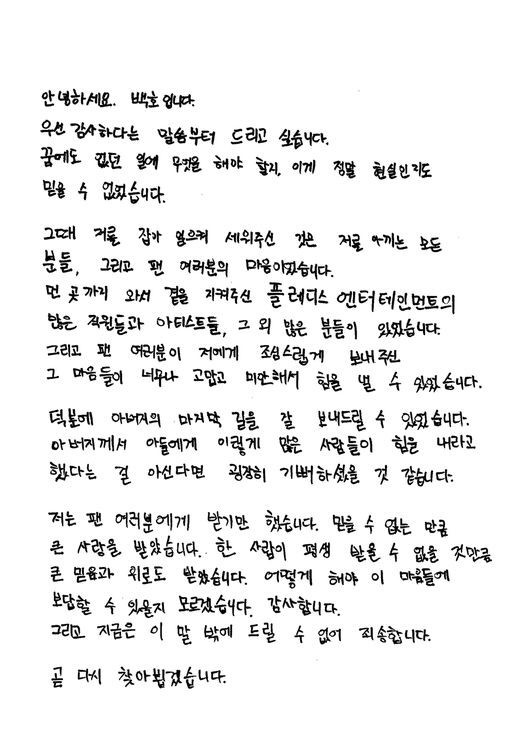 안녕하세요. 백호입니다.
우선 감사하다는 말씀부터 드리고 싶습니다.
꿈에도 없던 일에 무엇을 해야 할지, 이게 정말 현실인지도
믿을 수 없었습니다.
그때 저를 잡아 일으켜 세워주신 것은 저를 아끼는 모든
분들, 그리고 팬 여러분의 마음이었습니다.
먼 곳까지 와서 곁을 지켜주신 플레디스 엔터테인먼트의
많은 직원들과 아티스트들, 그 외 많은 분들이 있었습니다.
그리고 팬 여러분이 저에게 조심스럽게 보내주신
그 마음들이 너무나 고맙고 미안해서 힘을 낼 수 있었습니다.
덕분에 아버지의 마지막 길을 잘 보내드릴 수 있었습니다.
아버지께서 아들에게 이렇게 많은 사람들이 힘을 내라고
했다는 걸 아신다면 굉장히 기뻐하셨을 것 같습니다.
저는 팬 여러분에게 받기만 했습니다. 믿을 수 없는 만큼
큰 사랑을 받았습니다. 한 사람이 평생 받을 수 없을 것만큼
큰 믿음과 위로도 받았습니다. 어떻게 해야 이 마음들에
보답할 수 있을지 모르겠습니다. 감사합니다.
그리고 지금은 이 말 밖에 드릴 수 없어 죄송합니다.
곧 다시 찾아뵙겠습니다.